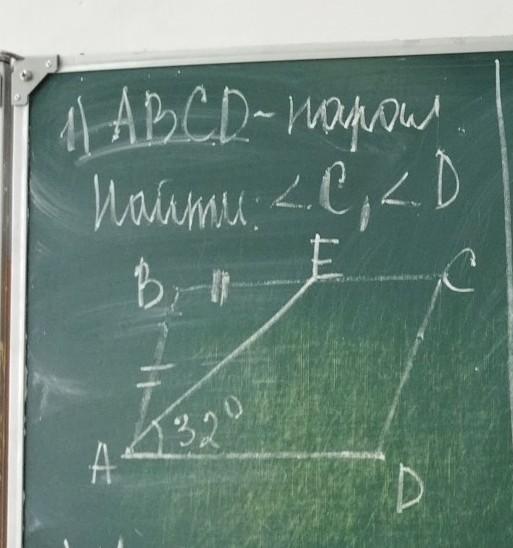 1) ABCD - парал.
Найти: ∠C, ∠D
B
E
C
32°
A
D